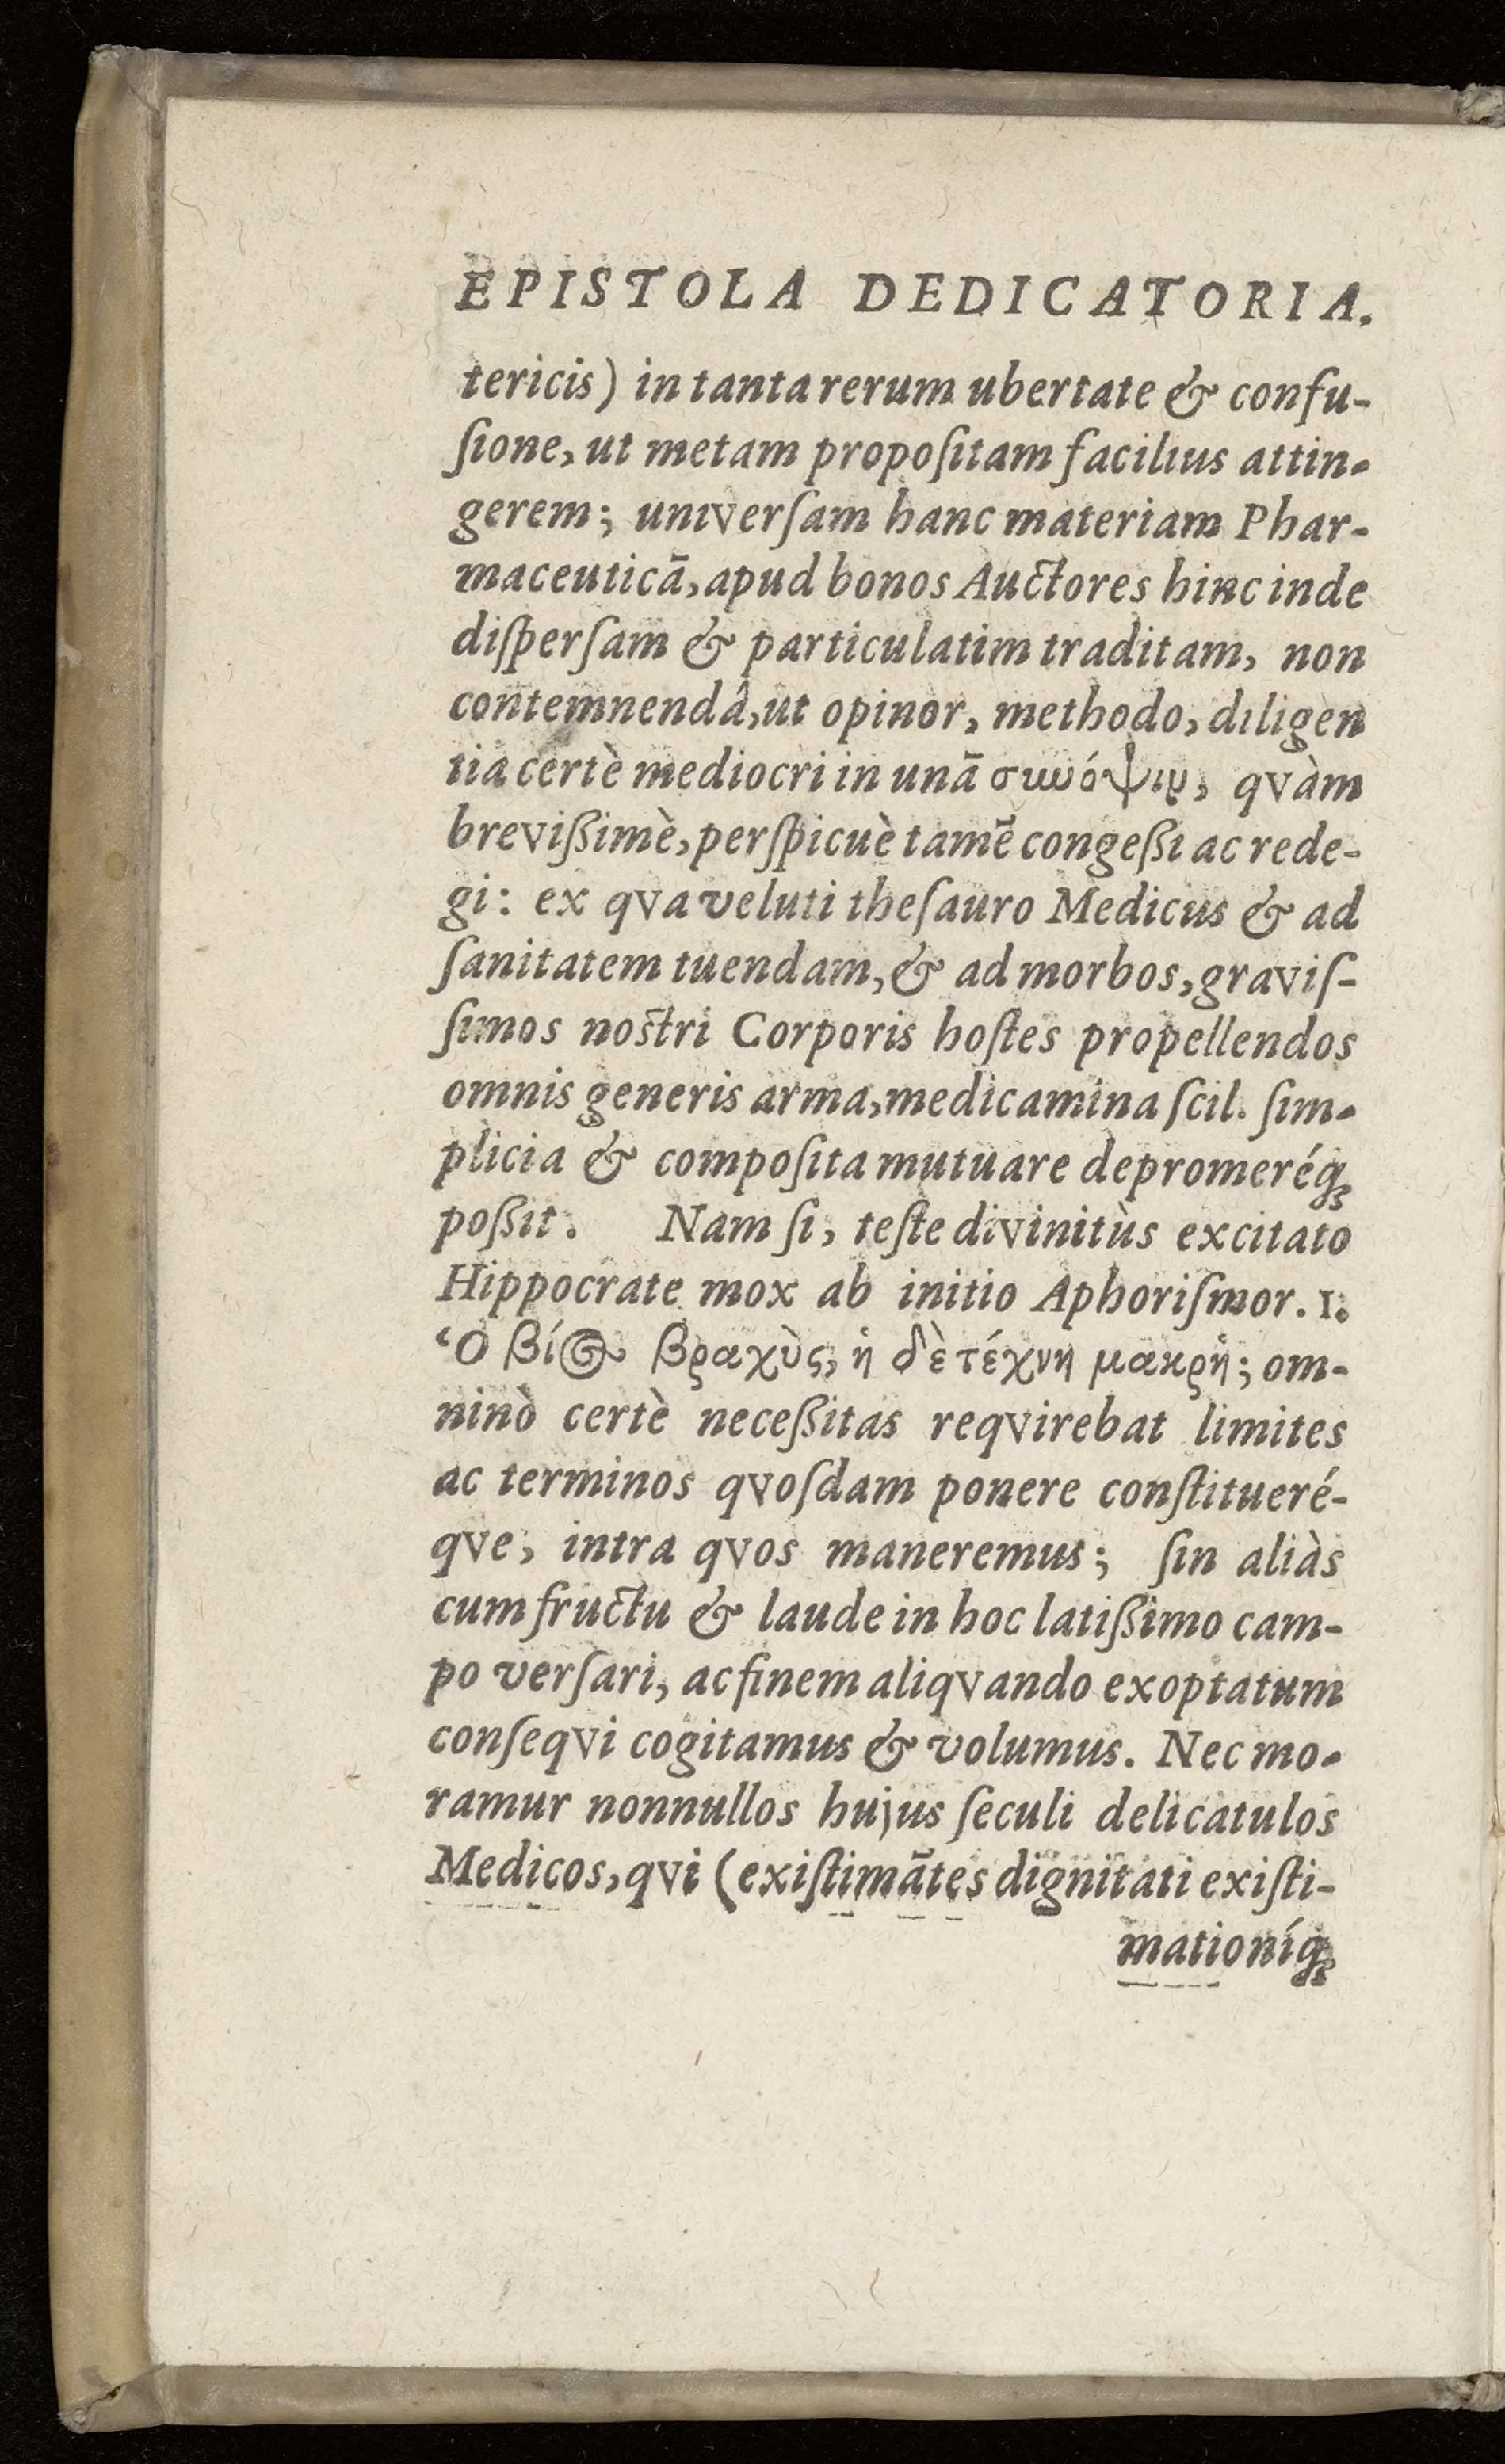 EPISTOLA DEDICATORIA.
tericis) in tanta rerum ubertate & confu-
ſione, ut metam propoſitam facilius attin-
gerem; univerſam hanc materiam Phar-
maceuticā, apud bonos Auctores hinc inde
diſperſam & particulatim traditam, non
contemnendâ, ut opinor, methodo, diligen
tia certè mediocri in unā συνόψιν, qvàm
breviſſimè, perſpicuè tamē congeſſi ac rede-
gi: ex qva veluti theſauro Medicus & ad
ſanitatem tuendam, & ad morbos, graviſ-
ſimos noſtri Corporis hoſtes propellendos
omnis generis arma, medicamina ſcil. ſim-
plicia & compoſita mutuare depromeréq;
poſſit. Nam ſi, teſte divinitùs excitato
Hippocrate mox ab initio Aphoriſmor. 1.
Ὁ βίος βραχὺς, ἡ δὲ τέχνη μακρὴ; om-
ninò certè neceſſitas reqvirebat limites
ac terminos qvoſdam ponere conſtitueré-
qve, intra qvos maneremus; ſin aliàs
cum fructu & laude in hoc latiſſimo cam-
po verſari, ac finem aliqvando exoptatum
conſeqvi cogitamus & volumus. Nec mo-
ramur nonnullos hujus ſeculi delicatulos
Medicos, qvi (exiſtimātes dignitati exiſti-
mationíq;